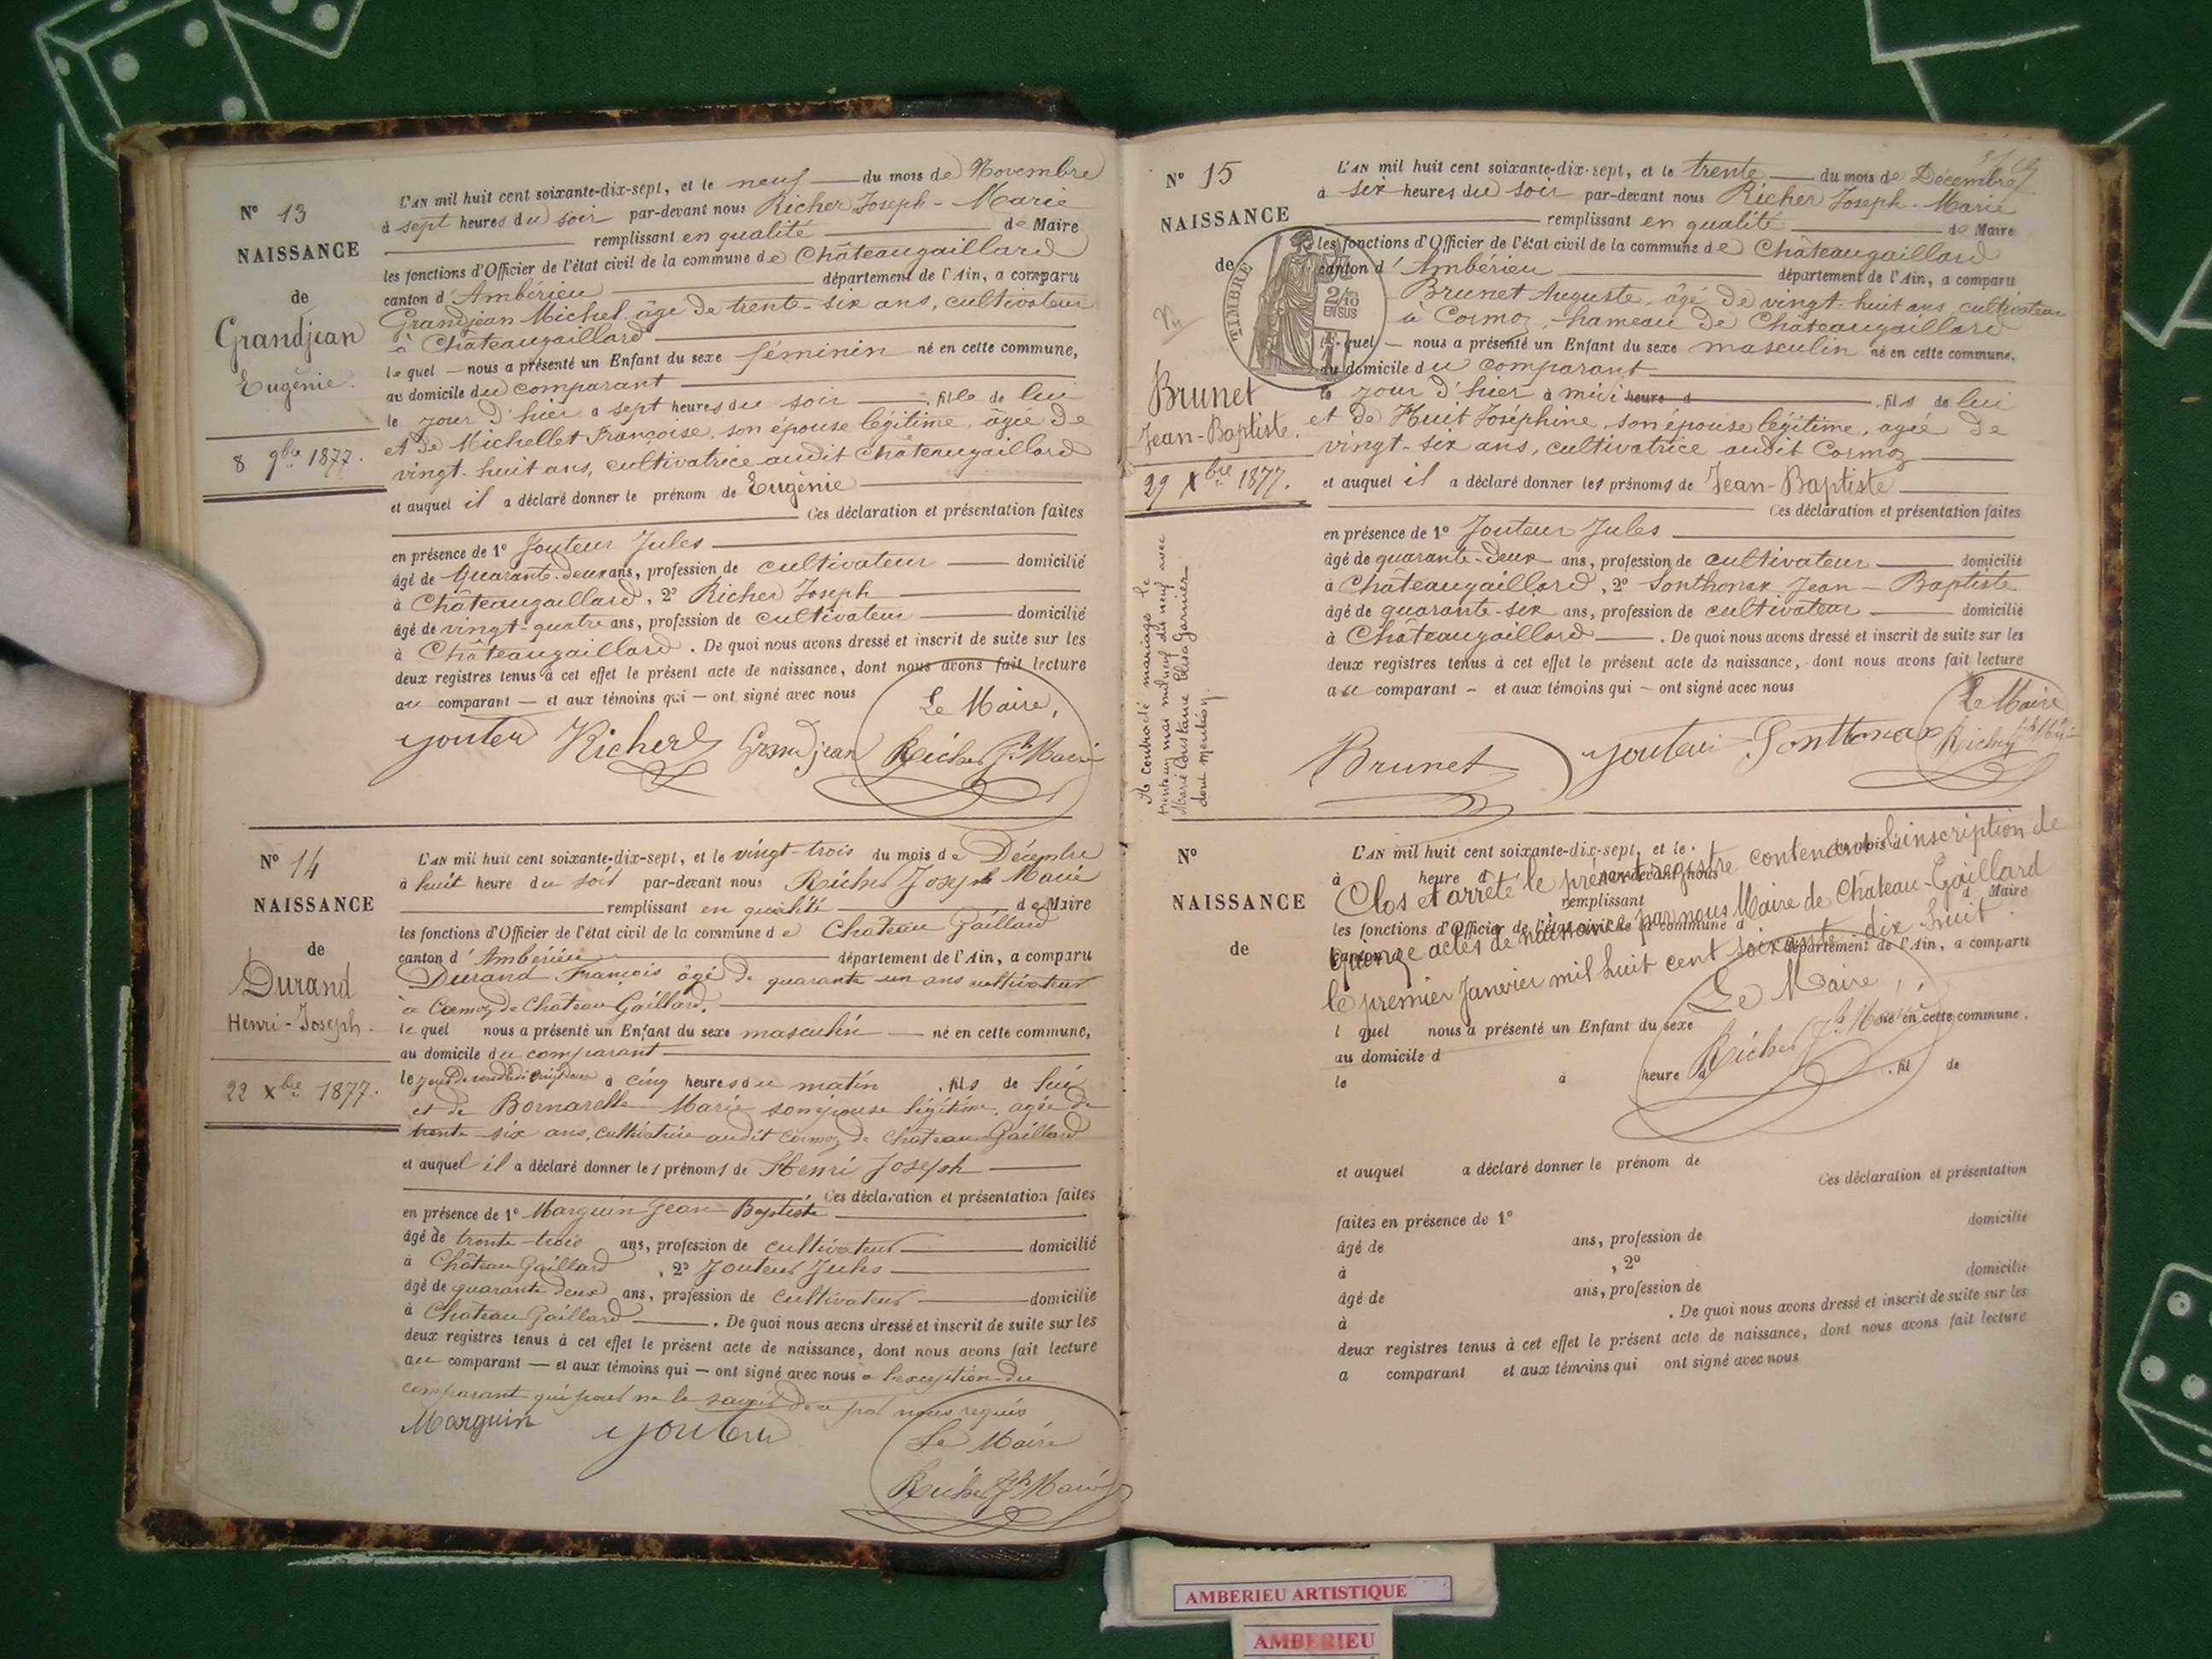 N° 13
NAISSANCE
de
Grandjean
Eugénie.
8 9bre 1877.
L'AN mil huit cent soixante-dix-sept, et le neuf du mois de Novembre
à sept heures du soir par-devant nous Richer Joseph-Marie
remplissant en qualité de Maire
les fonctions d'Officier de l'état civil de la commune de Châteaugaillard
canton d'Ambérieu département de l'Ain, a comparu
Grandjean Michel âgé de trente-six ans, cultivateur
à Châteaugaillard
lequel — nous a présenté un Enfant du sexe féminin né en cette commune,
au domicile du comparant
le jour d'hier à sept heures du soir , fille de lui
et de Michellet Françoise, son épouse légitime, âgée de
vingt-huit ans, cultivatrice audit Châteaugaillard
et auquel il a déclaré donner le prénom de Eugénie
Ces déclaration et présentation faites
en présence de 1° Jouteur Jules
âgé de Quarante-deux ans, profession de cultivateur domicilié
à Châteaugaillard, 2° Richer Joseph
âgé de vingt-quatre ans, profession de cultivateur domicilié
à Châteaugaillard. De quoi nous avons dressé et inscrit de suite sur les
deux registres tenus à cet effet le présent acte de naissance, dont nous avons fait lecture
au comparant — et aux témoins qui — ont signé avec nous
Le Maire,
Jouteur Richer Grandjean Richer Jh Marie
N° 14
NAISSANCE
de
Durand
Henri-Joseph.
22 Xbre 1877.
L'AN mil huit cent soixante-dix-sept, et le vingt-trois du mois de Décembre
à huit heure du soir par-devant nous Richer Joseph Marie
remplissant en qualité de Maire
les fonctions d'Officier de l'état civil de la commune de Chateau Gaillard
canton d'Ambérieu département de l'Ain, a comparu
Durand François âgé de quarante un ans cultivateur
à Cormoz de Château Gaillard.
lequel nous a présenté un Enfant du sexe masculin né en cette commune,
au domicile du comparant
le jour de vendredi vingt deux à cinq heures du matin , fils de lui
et de Bornarelle Marie son épouse légitime, agée de
trente six ans, cultivatrice audit Cormoz de Chateau Gaillard
et auquel il a déclaré donner les prénoms de Henri Joseph
Ces déclaration et présentation faites
en présence de 1° Marguin Jean Baptiste
âgé de trente-trois ans, profession de cultivateur domicilié
à Château Gaillard, 2° Jouteur Jules
âgé de quarante deux ans, profession de cultivateur domicilié
à Chateau Gaillard. De quoi nous avons dressé et inscrit de suite sur les
deux registres tenus à cet effet le présent acte de naissance, dont nous avons fait lecture
au comparant — et aux témoins qui — ont signé avec nous à l'exception du
comparant qui pour ne le savoir de ce par nous requis
Marguin Jouteur
Le Maire
Richer Jh Marie
N° 15
NAISSANCE
de
TIMBRE
2/10
EN SUS
Brunet
Jean-Baptiste.
29 Xbre 1877.
A contracté mariage le
trente un mai mil neuf dix neuf avec
Marie Constance Elisa Garnier
dont mention.
L'AN mil huit cent soixante-dix-sept, et le trente du mois de Décembre
à six heures du soir par-devant nous Richer Joseph-Marie
remplissant en qualité de Maire
les fonctions d'Officier de l'état civil de la commune de Châteaugaillard
canton d'Ambérieu département de l'Ain, a comparu
Brunet Auguste, âgé de vingt-huit ans cultivateur
à Cormoz, hameau de Châteaugaillard
lequel — nous a présenté un Enfant du sexe masculin né en cette commune,
au domicile du comparant
le jour d'hier à midi heure d , fils de lui
et de Huit Joséphine son épouse légitime, agée de
vingt-six ans, cultivatrice audit Cormoz
et auquel il a déclaré donner les prénoms de Jean-Baptiste
Ces déclaration et présentation faites
en présence de 1° Jouteur Jules
âgé de quarante-deux ans, profession de cultivateur domicilié
à Châteaugaillard, 2° Sonthonax Jean-Baptiste
âgé de quarante-six ans, profession de cultivateur domicilié
à Châteaugaillard. De quoi nous avons dressé et inscrit de suite sur les
deux registres tenus à cet effet le présent acte de naissance, dont nous avons fait lecture
au comparant — et aux témoins qui — ont signé avec nous
Le Maire
Brunet Jouteur Sonthonax Richer Jh Marie
N°
NAISSANCE
de
L'AN mil huit cent soixante-dix-sept, et le du mois d
à heure d par-devant nous
remplissant d Maire
les fonctions d'Officier de l'état civil de la commune d
canton d département de l'Ain, a comparu
Clos et arrêté le présent registre contenant l'inscription de
quinze actes de naissance par nous Maire de Château-Gaillard
le premier Janvier mil huit cent soixante dix huit.
Le Maire,
Richer Jh Marie
l quel nous a présenté un Enfant du sexe né en cette commune,
au domicile d
le à heure d , fil de
et auquel a déclaré donner le prénom de
Ces déclaration et présentation
faites en présence de 1°
âgé de ans, profession de domicilié
à , 2°
âgé de ans, profession de domicilié
à . De quoi nous avons dressé et inscrit de suite sur les
deux registres tenus à cet effet le présent acte de naissance, dont nous avons fait lecture
a comparant et aux témoins qui ont signé avec nous
AMBERIEU ARTISTIQUE
AMBERIEU